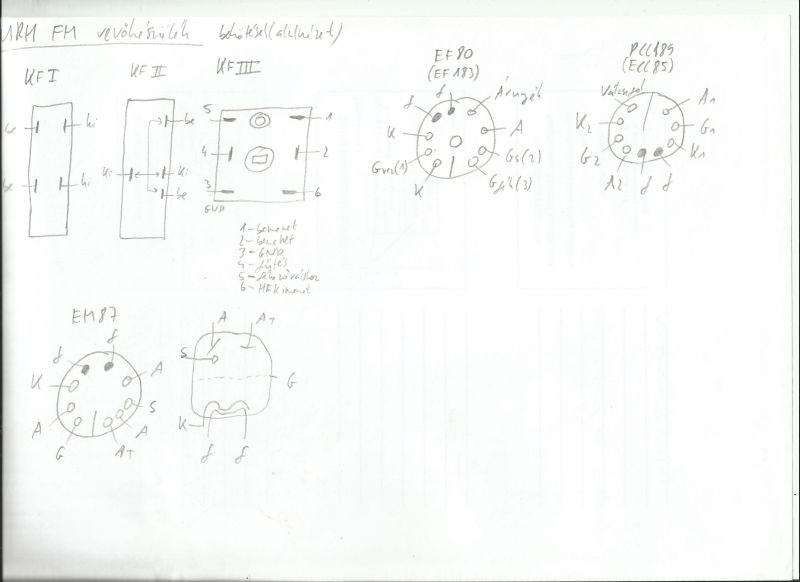 FM vevőkészülék bekötései (alulnézet)
KF I
KF II
KF III
EF80
(EF183)
PCC189
(ECC85)
be
ki
be
ki
be
ki
ki
be
5
1
4
2
3
6
GND
1 - bemenet
2 - bemenet
3 - GND
4 - fűtés
6 - MF kimenet
f
f
Árnyék
K
A
Gvez(1)
Gs(2)
K
Gfék(3)
A1
K2
G1
G2
K1
A2
f
f
EM87
f
f
K
A
A
S
G
AT
A
A
AT
S
G
K
f
f